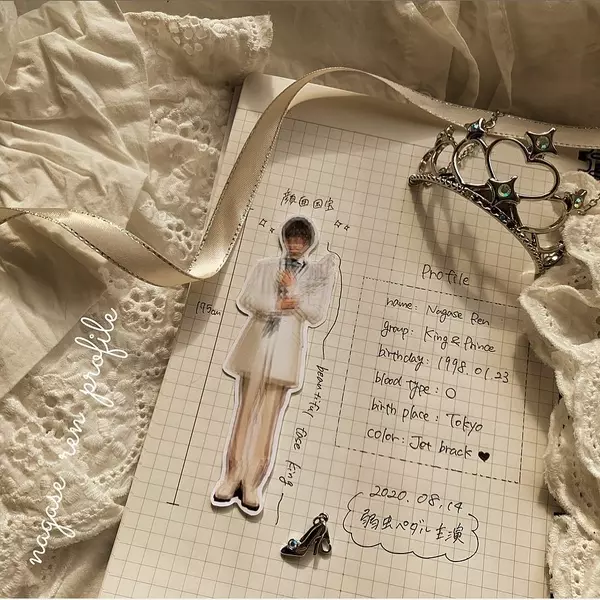 顔面国宝
195cm
beautiful face king
Profile
name: Nagase Ren
group: King & Prince
birthday: 1998.01.23
blood Type: O
birth place: Tokyo
color: Jet brack ♥
2020.08.14
弱虫ペダル主演
nagase ren profile